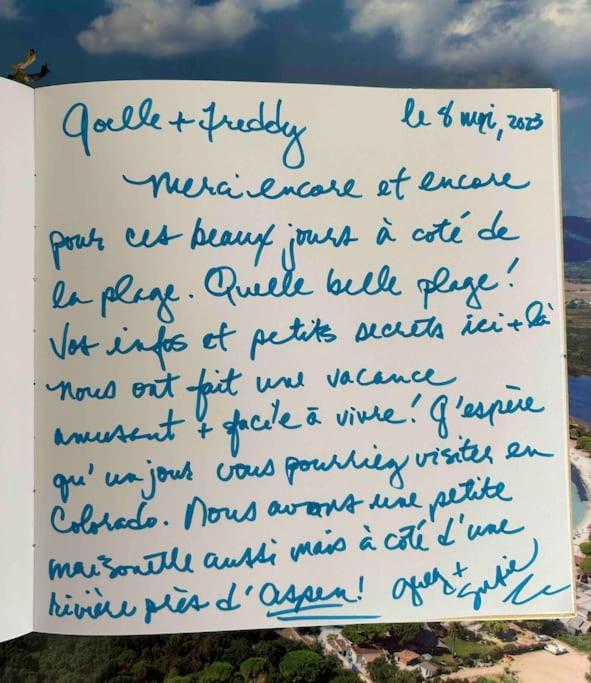 Goelle + Freddy le 8 mai, 2023
Merci encore et encore
pour ces beaux jours à coté de
la plage. Quelle belle plage!
Vos infos et petits secrets ici + là
nous ont fait une vacance
amusant + facile à vivre! J'espère
qu'un jour vous pourriez visiter en
Colorado. Nous avons une petite
maisonette aussi mais à côté d'une
rivière près d'Aspen! Greg +
Susie